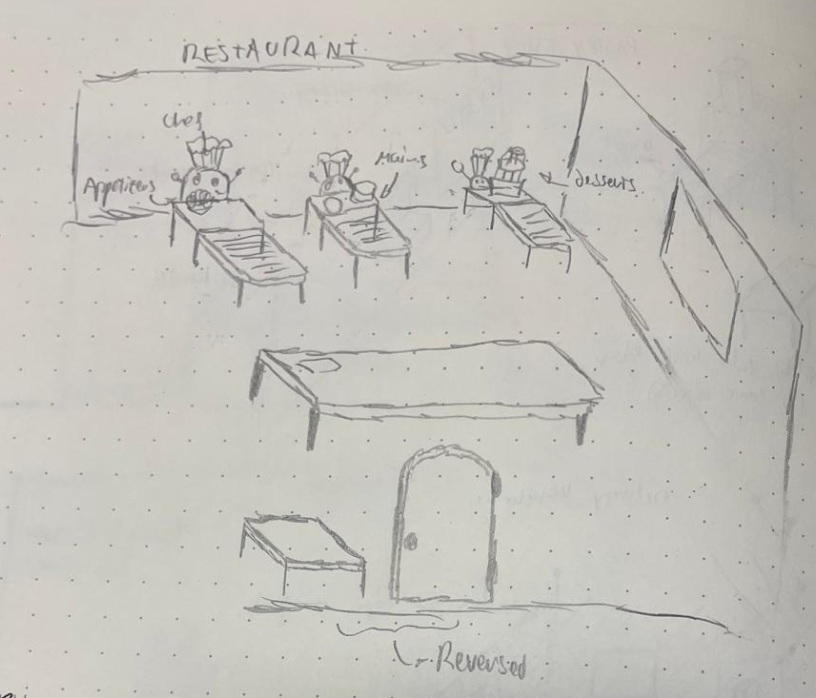 RESTAURANT
Chef
Appetizers
Mains
desserts
Reversed